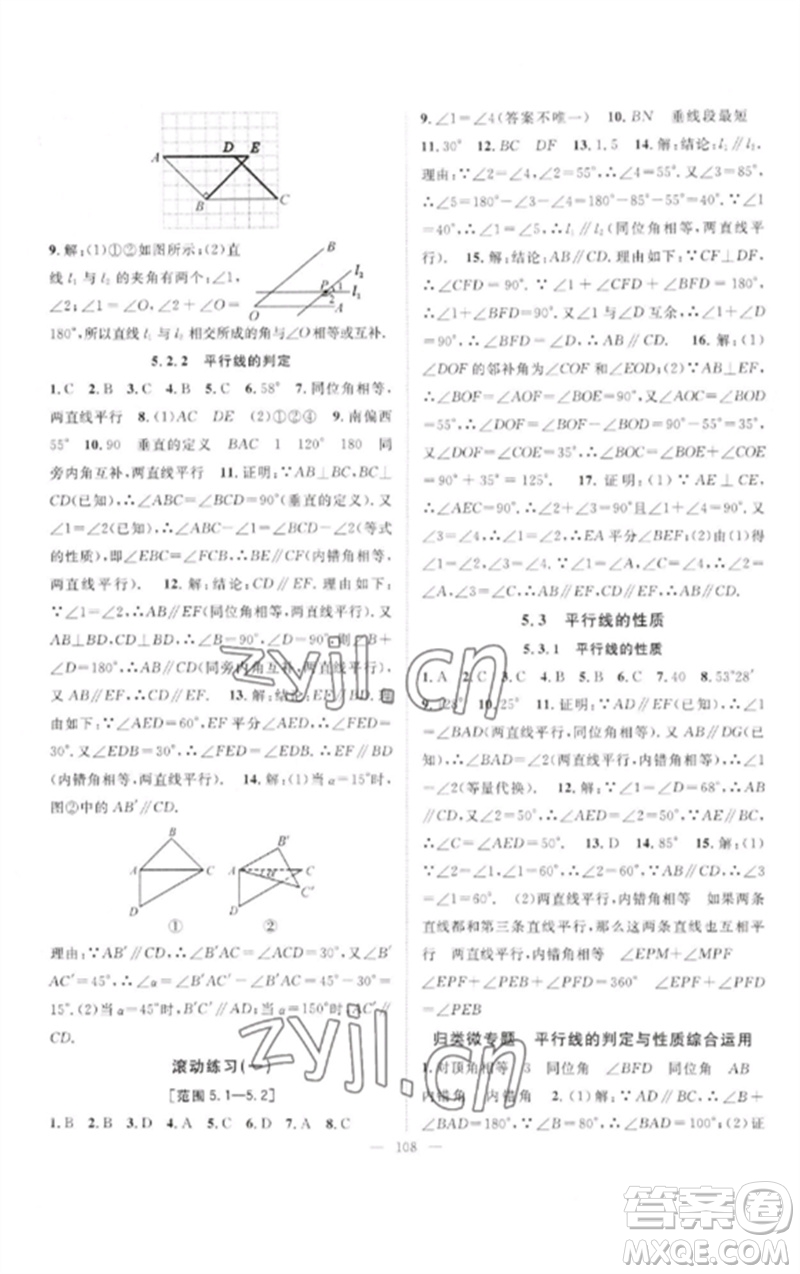 A D E
B C
9. 解:(1)①②如图所示;(2)直
线 l₁ 与 l₂ 的夹角有两个:∠1,
∠2;∠1=∠O,∠2+∠O=
180°,所以直线 l₁ 与 l₂ 相交所成的角与∠O相等或互补.
B
l₂
P 1 l₁
2
O A
5.2.2 平行线的判定
1. C 2. B 3. C 4. B 5. C 6. 58° 7. 同位角相等,
两直线平行 8. (1)AC DE (2)①②④ 9. 南偏西
55° 10. 90 垂直的定义 BAC 1 120° 180 同
旁内角互补,两直线平行 11. 证明:∵AB⊥BC,BC⊥
CD(已知),∴∠ABC=∠BCD=90°(垂直的定义).又
∵∠1=∠2(已知),∴∠ABC-∠1=∠BCD-∠2(等式
的性质),即∠EBC=∠FCB,∴BE∥CF(内错角相等,
两直线平行). 12. 解:结论:CD∥EF.理由如下:
∵∠1=∠2,∴AB∥EF(同位角相等,两直线平行).又
∵AB⊥BD,CD⊥BD,∴∠B=90°,∠D=90°,则∠B+
∠D=180°,∴AB∥CD(同旁内角互补,两直线平行),
又∵AB∥EF,∴CD∥EF. 13. 解:结论:EF∥BD.理
由如下:∵∠AED=60°,EF平分∠AED,∴∠FED=
30°.又∵∠EDB=∠2=30°,∴∠EDB=∠FED,∴EF∥BD
(内错角相等,两直线平行). 14. 解:(1)当α=15°时,
图②中的 AB′∥CD.
B
A C
D
①
B′
A α C
C′
D
②
理由:∵AB′∥CD,∴∠B′AC=∠C=30°,又∵∠B′
AC′=45°,∴∠α=∠B′AC′-∠B′AC=45°-30°=
15°.(2)当α=45°时,B′C′∥AD;当α=150°时,AC′∥
CD.
滚动练习(一)
[范围5.1—5.2]
1. B 2. B 3. D 4. A 5. C 6. B 7. A 8. C
9. ∠1=∠4(答案不唯一) 10. BN 垂线段最短
11. 30° 12. BC DF 13. 1,5 14. 解:结论:l₁∥l₂.
理由:∵∠2=∠4,∠2=55°,∴∠4=55°.∵∠2+∠3+
∠4=180°,∴∠3=180°-85°-55°=40°.又∵∠1
=40°,∴∠1=∠3,∴l₁∥l₂(同位角相等,两直线平
行). 15. 解:结论:AB∥CD.理由:∵CF⊥DF,
∴∠CFD=90°.∵∠1+∠CFD+∠BFD=180°,
∴∠1+∠BFD=90°.又∵∠1与∠D互余,∴∠1+∠D
=90°,∴∠BFD=∠D,∴AB∥CD. 16. 解:(1)
∠DOF 的邻补角为∠COF和∠EOD;(2)∵AB⊥EF,
∴∠BOF=∠AOF=∠BOE=90°.∵∠AOC=∠BOD
=55°,∴∠DOF=∠COE=∠BOF-∠BOD=90°-
55°=35°,∴∠DOF=∠COE=35°,∠BOC=∠BOE+∠COE
=90°+35°=125°. 17. 证明:(1)∵AE⊥CE,
∴∠AEC=90°.∴∠2+∠3=90°且∠1+∠4=90°.又
∵∠1=∠2,∴∠3=∠4,∴EA平分∠BEF;(2)由(1)得
∠3=∠4,∵∠4=∠C,∴∠3=∠C.∴AB∥CD.
5.3 平行线的性质
5.3.1 平行线的性质
1. A 2. C 3. C 4. B 5. C 6. C 7. 40 8. 53°28′
9. 128° 10. 25° 11. 证明:∵AD∥EF(已知),∴∠1=
∠BAD(两直线平行,同位角相等).又∵AB∥DG(已
知),∴∠BAD=∠2(两直线平行,内错角相等),∴∠1=
∠2(等量代换). 12. 解:∵∠1=∠D=68°,∴AB∥
CD,∴∠AED=∠2=50°.又∵AE∥BC,
∴∠C=∠AED=50°. 13. D 14. 85° 15. (1)∵AB∥
CD,∴∠1=∠3=60°,又∵AC∥BD,∴∠2=∠3=60°,
∴∠1=60°. (2)两直线平行,内错角相等 如果两条
直线都和第三条直线平行,那么这两条直线也互相平
行 两直线平行,内错角相等 ∠EPM+∠MPF
∠EPF+∠PEB+∠PFD=360° ∠EPF+∠PFD
=∠PEB
归类微专题 平行线的判定与性质综合运用
1. 对顶角相等 3 同位角 ∠BAD 内错角 AB
内错角 内错角 2. (1)解:∵AD∥BC,∴∠B+
∠BAD=180°,又∵∠B=∠D,∴∠D+∠BAD=180°;(2)证
108
zyjl.cn
zyjl.cn
答案圈
MXQE.COM